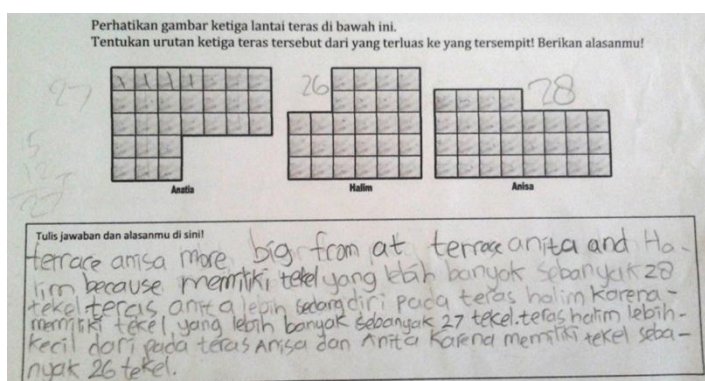 Perhatikan gambar ketiga lantai teras di bawah ini.
Tentukan urutan ketiga teras tersebut dari yang terluas ke yang tersempit! Berikan alasanmu!
27
26
28
5
Anatia
Halim
Anisa
Tulis jawaban dan alasanmu di sini!
terrace anisa more big from at terrace anita and Ha-
lim because memiliki tekel yang lebih banyak sebanyak 28
tekel.teras anita lebih sedang diri pada teras halim karena-
memiliki tekel yang lebih banyak sebanyak 27 tekel.teras halim lebih-
kecil dari pada teras Anisa dan Anita karena memiliki tekel seba-
nyak 26 tekel.